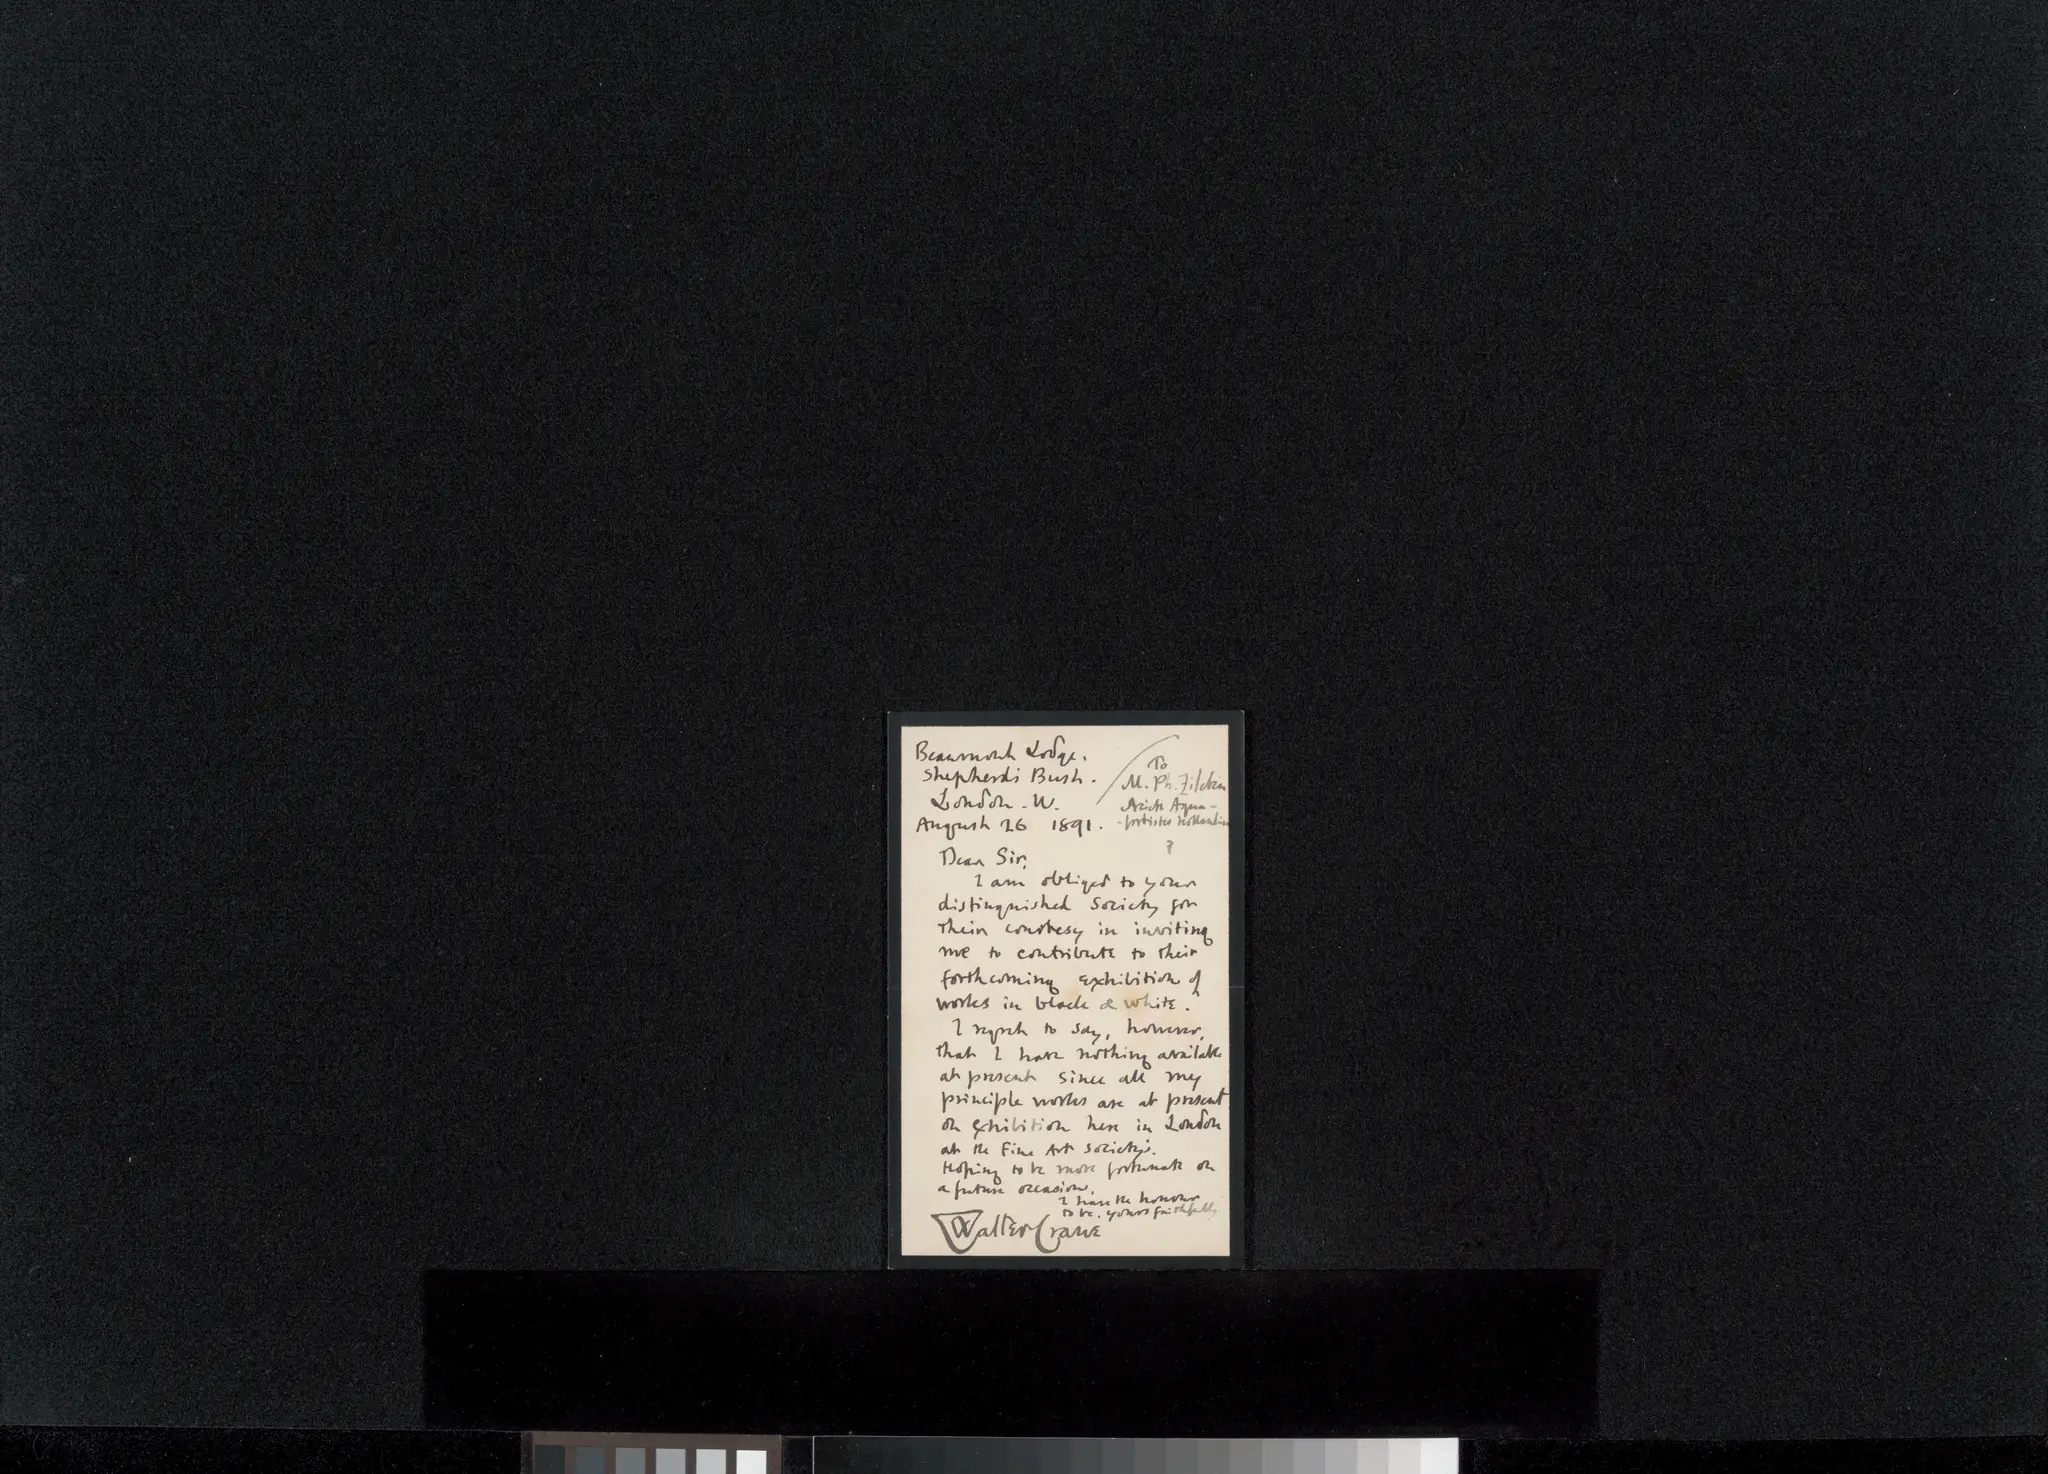 Beaumont Lodge.
Shepherds Bush.
London. W.
August 26 1891.
To
M. Ph. Zilcken
Aqua-
-fortistes
?
Dear Sir,
I am obliged to your
distinguished Society for
their courtesy in inviting
me to contribute to their
forthcoming exhibition of
works in black & white.
I regret to say, however,
that I have nothing available
at present since all my
principle works are at present
on exhibition here in London
at the Fine Art Society's.
Hoping to be more fortunate on
a future occasion,
I have the honour
to be. yours faithfully
Walter Crane